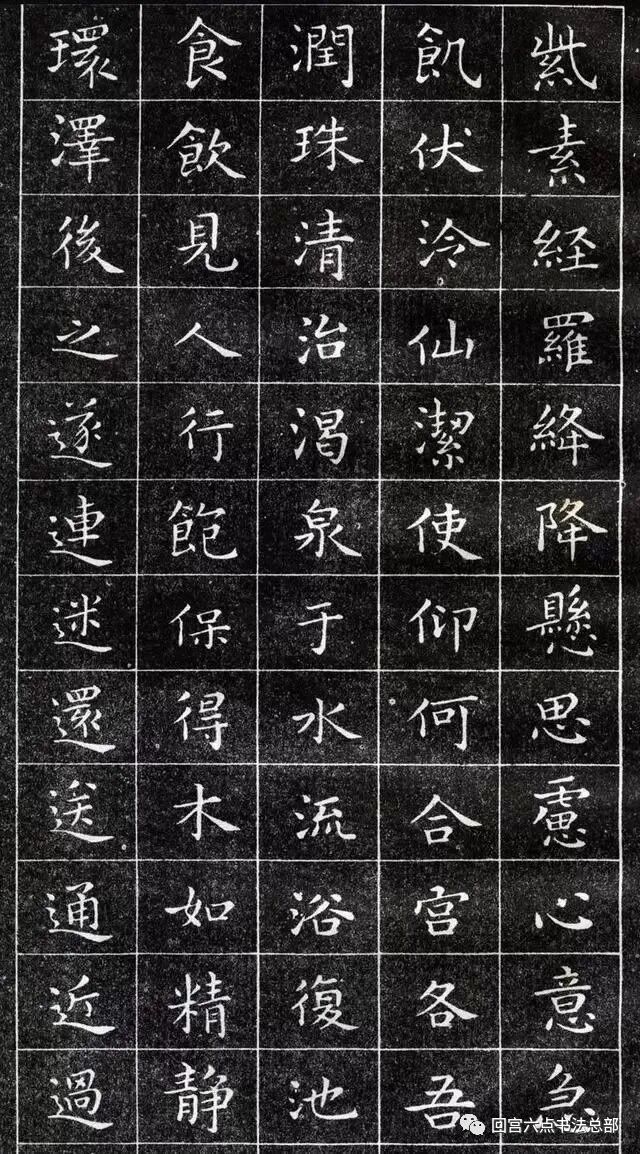 紫素経羅絳降懸思慮心意急
飢伏泠仙潔使仰何合宫各吾
潤珠清治渴泉于水流浴復池
食飲見人行飽保得木如精静
環澤後之遂連迷還送通近過
回宫六点书法总部